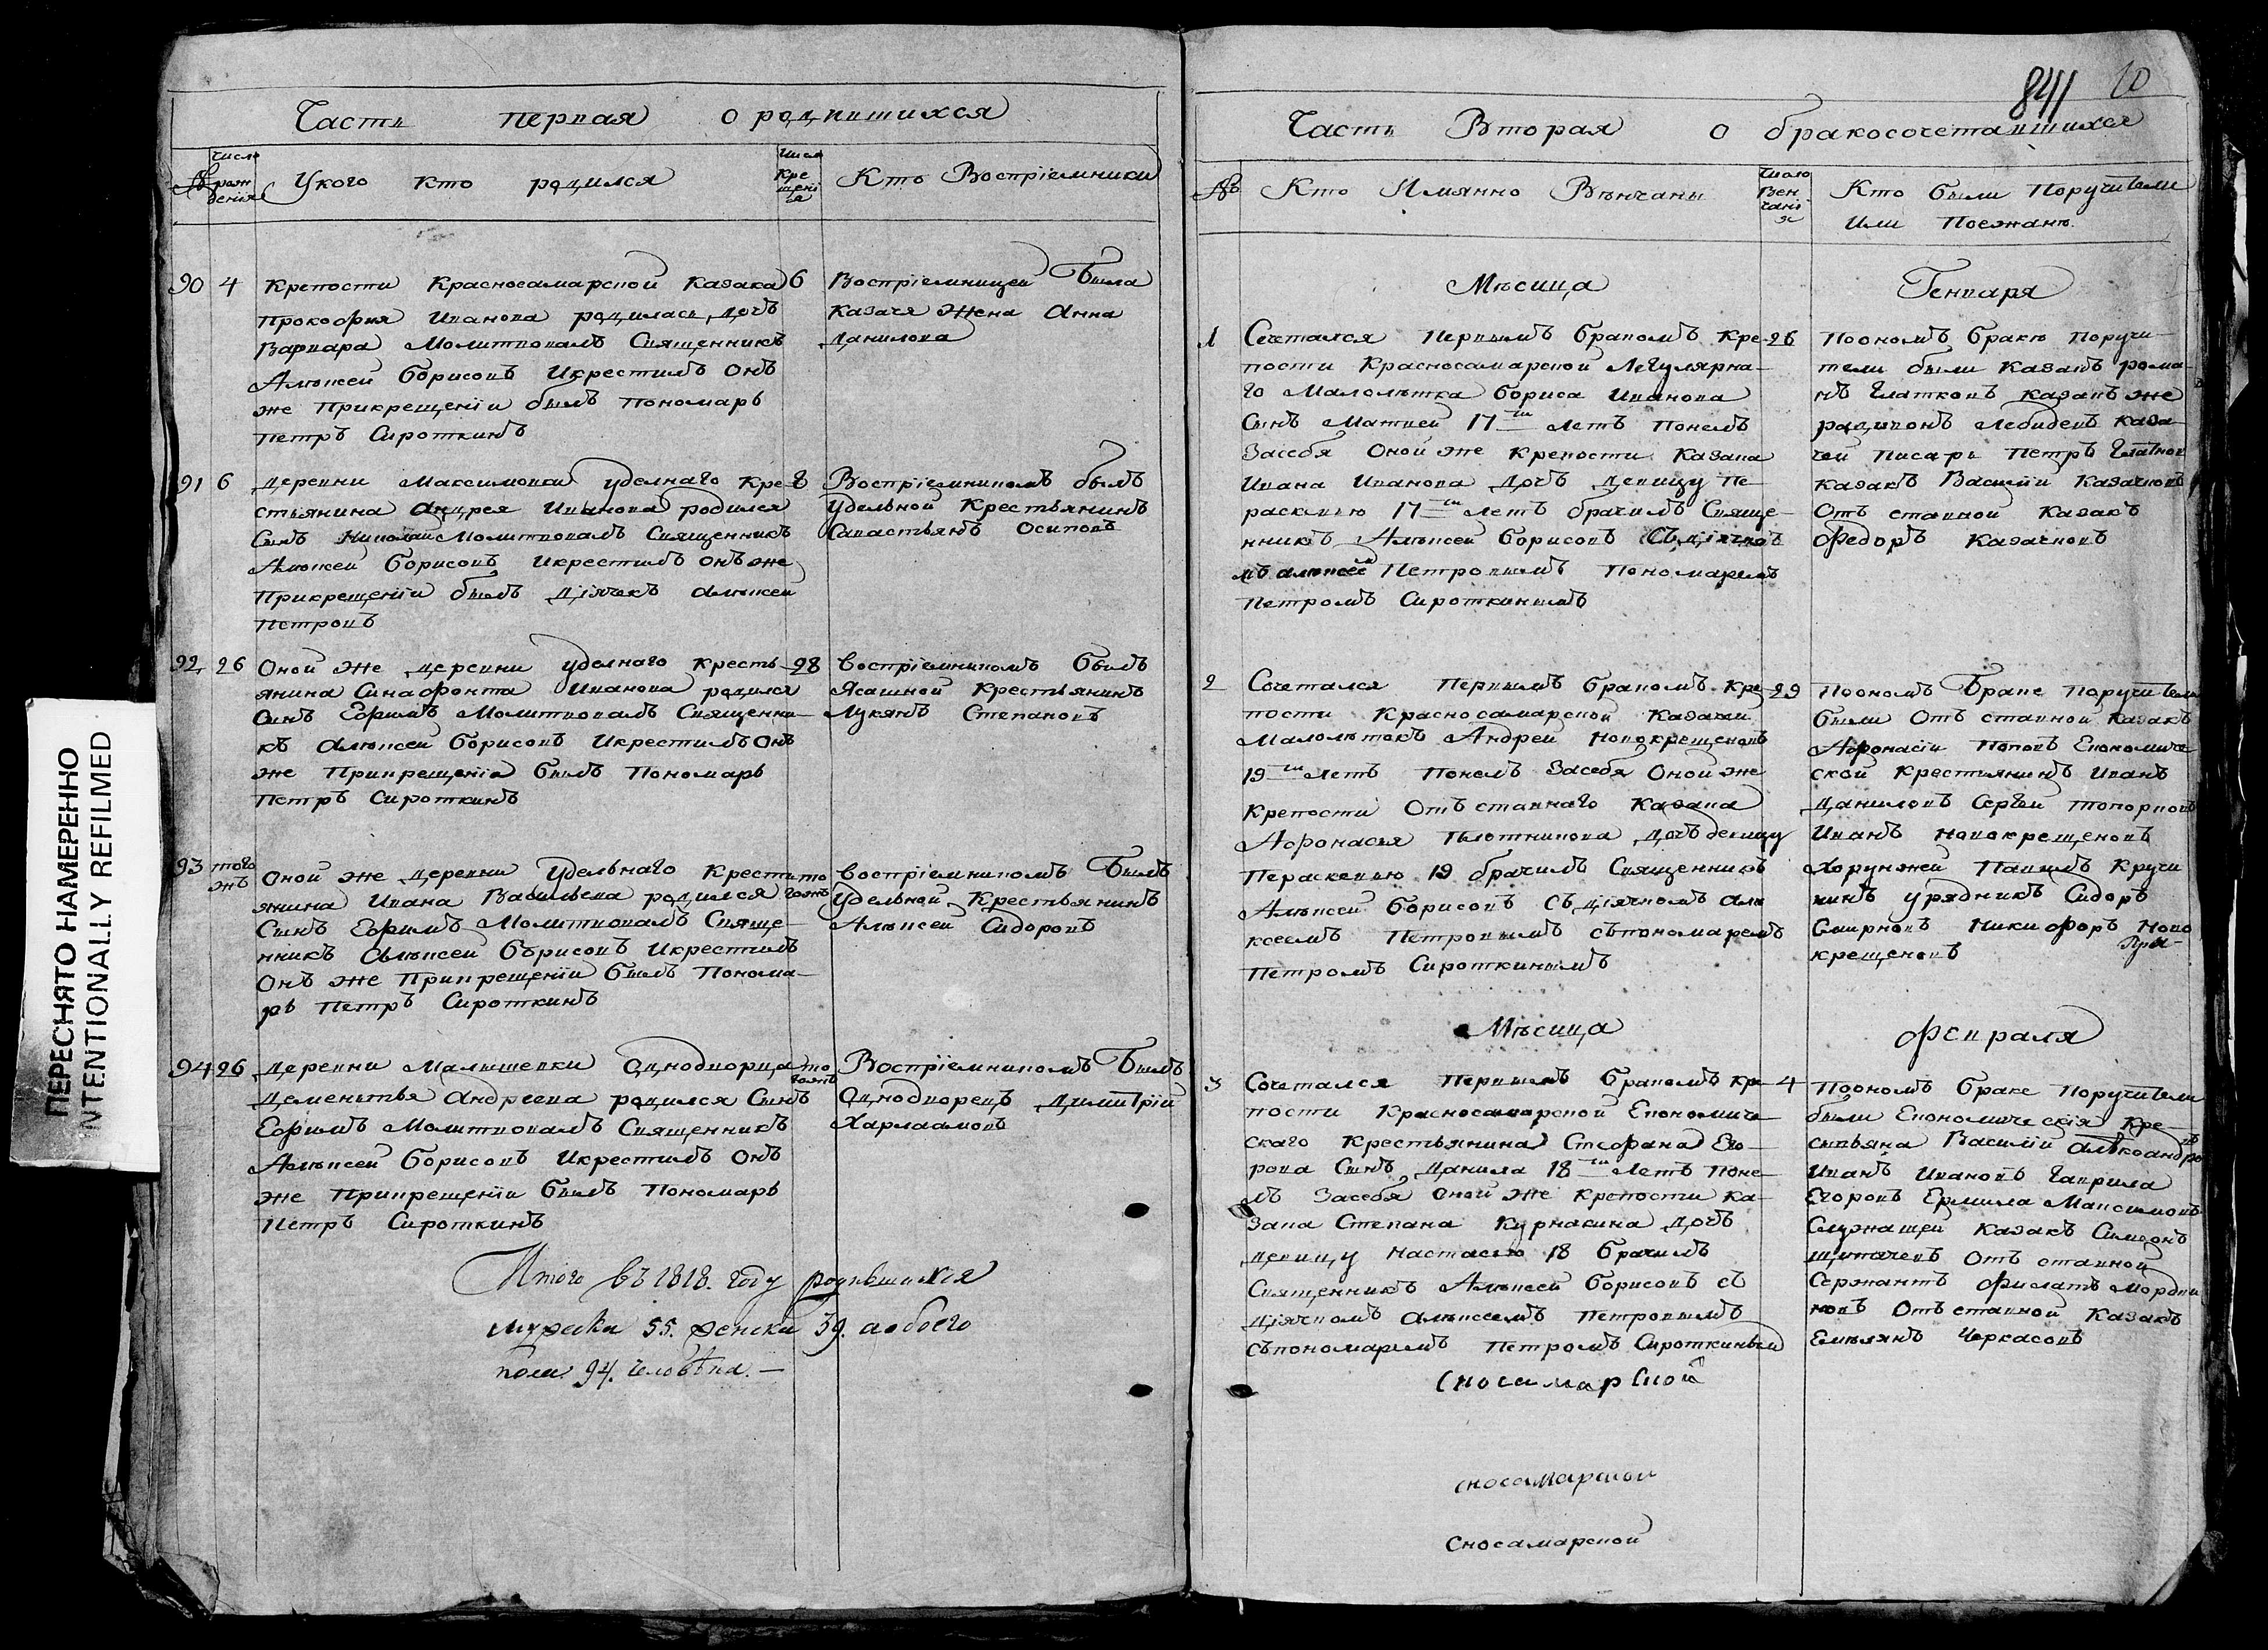 ПЕРЕСНЯТО НАМЕРЕННО
INTENTIONALLY REFILMED
Часть первая о родившихся
№
Число рождения
У кого кто родился
Число крещения
Кто Восприемники
90 4 Крепости Красносамарской Казака 6
Прокофия Иванова родилась дочь
Варвара Молитвовалъ Священникъ
Алѣксей Борисовъ Икрестилъ Онъ
же Прикрещеніи былъ Пономарь
Петръ Сироткинъ
Востріемницей Была
Казачя Жена Анна
Данилова
91 6 деревни Максимовки уделнаго Кре- 8
стьянина Андрея Иванова родился
Сынъ Николай Молитвовалъ Священникъ
Алѣксей Борисовъ Икрестилъ онъ же
Прикрещеніи былъ діячекъ Алѣксей
Петровъ
Востріемникомъ былъ
Удельной Крестьянинъ
Савастьянъ Осиповъ
92 26 Оной же деревни уделнаго кресть- 28
янина Синафонта Иванова родился
Сынъ Ефимъ Молитвовалъ Священни-
къ Алѣксей Борисовъ Икрестилъ Онъ
же Прикрещеніи былъ Пономарь
Петръ Сироткинъ
востріемникомъ былъ
Ясашной Крестьянинъ
Лукянъ Степановъ
93 того жъ Оной же деревни Удельнаго Крести- тогожъ
янина Ивана Васильева родился
Сынъ Ефимъ Молитвовалъ Свяще-
нникъ Алѣксей Борисовъ Икрестилъ
Онъ же Прикрещеніи былъ Понома-
рь Петръ Сироткинъ
востріемникомъ Былъ
Удельной Крестьянинъ
Алѣксей Сидоровъ
94 26 деревни Малышевки Однодворца тогожъ
Дементьтья Андреева родился Сынъ
Ефимъ Молитвовалъ Священникъ
Алѣксей Борисовъ Икрестилъ Онъ
же Прикрещеніи былъ Пономарь
Петръ Сироткинъ
Востріемникомъ Былъ
Однодворецъ Димитрій
Харламовъ
Итого въ 1818. году родившихся
мужеска 55. женска 39. а обоего
пола 94. человѣка. —
841 10
Часть Вторая о бракосочетавшихся
№
Кто Имянно Венчаны
Число Венчанія
Кто были Поручители
Или Поезжанѣ.
Мѣсица Генваря
1 Сочетался Первымъ бракомъ Кре- 26
пости Красносамарской Легулярна-
го Малолѣтка Бориса Иванова
Сынъ Матвей 17ти летъ Понелъ
Засебя Оной же крепости Казака
Ивана Иванова дочь девицу Пе-
раскевию 17ти летъ брачилъ Свяще-
нникъ Алѣксей Борисовъ Съдіячко
мъ алѣксеемъ Петровымъ Пономаремъ
Петромъ Сироткинымъ
Поономъ бракѣ поручи-
тели были Казакъ рома-
нъ Глатковъ казакъ же
радивонъ Лебидевъ каза-
чей писарь Петръ Глатков
казакъ Василий Казачковъ
Отъ ставной Казакъ
Федоръ Казачковъ
2 Сочетался Первымъ бракомъ Кре- 29
пости Красносамарской Казачий
Малолѣтокъ Андрей Новокрещеновъ
19ти летъ Понелъ Засебя Оной же
крепости Отъставнаго Казака
Афонасея Плотникова дочь девицу
Пераскевию 19 брачилъ Священникъ
Алѣксей Борисовъ Съдіячкомъ алѣ
ксеемъ Петровымъ съпономаремъ
Петромъ Сироткинымъ
Поономъ Браке Поручители
были Отъ ставной Казакъ
Афонасіи Поповъ Економиче
ской Крестиянинъ Иванъ
Даниловъ Сергеи Топорковъ
Иванъ новокрещеновъ
Хорунжей Павелъ Кручи
нинъ урядникъ Сидоръ
Смирновъ Никифоръ Ново
крещеновъ
Мѣсица Февраля
3 Сочетался Первымъ бракомъ кре- 4
пости Красносамарской Економиче-
скаго крестьянина Стефана Его-
рова Сынъ Данила 18ти летъ поне-
лъ Засебя оной же крепости ка-
зака Степана Курнакина дочь
девицу Настасею 18 брачилъ
Священникъ Алѣксей Борисовъ съ
діячкомъ алѣксеемъ Петровымъ
съпономаремъ Петромъ Сироткиным
Поономъ браке Поручители
были Економическія Кре-
стьяна Василій Алѣксандровъ
Иванъ Ивановъ Гаврила
Егоровъ Ермила Максимовъ
Служащей казакъ Симеонъ
Отъ ставной
Сержантъ Филатъ Мордви
новъ Отъставной Казакъ
Емельянъ Черкасовъ
сносамарской
сносамарской
сносамарской